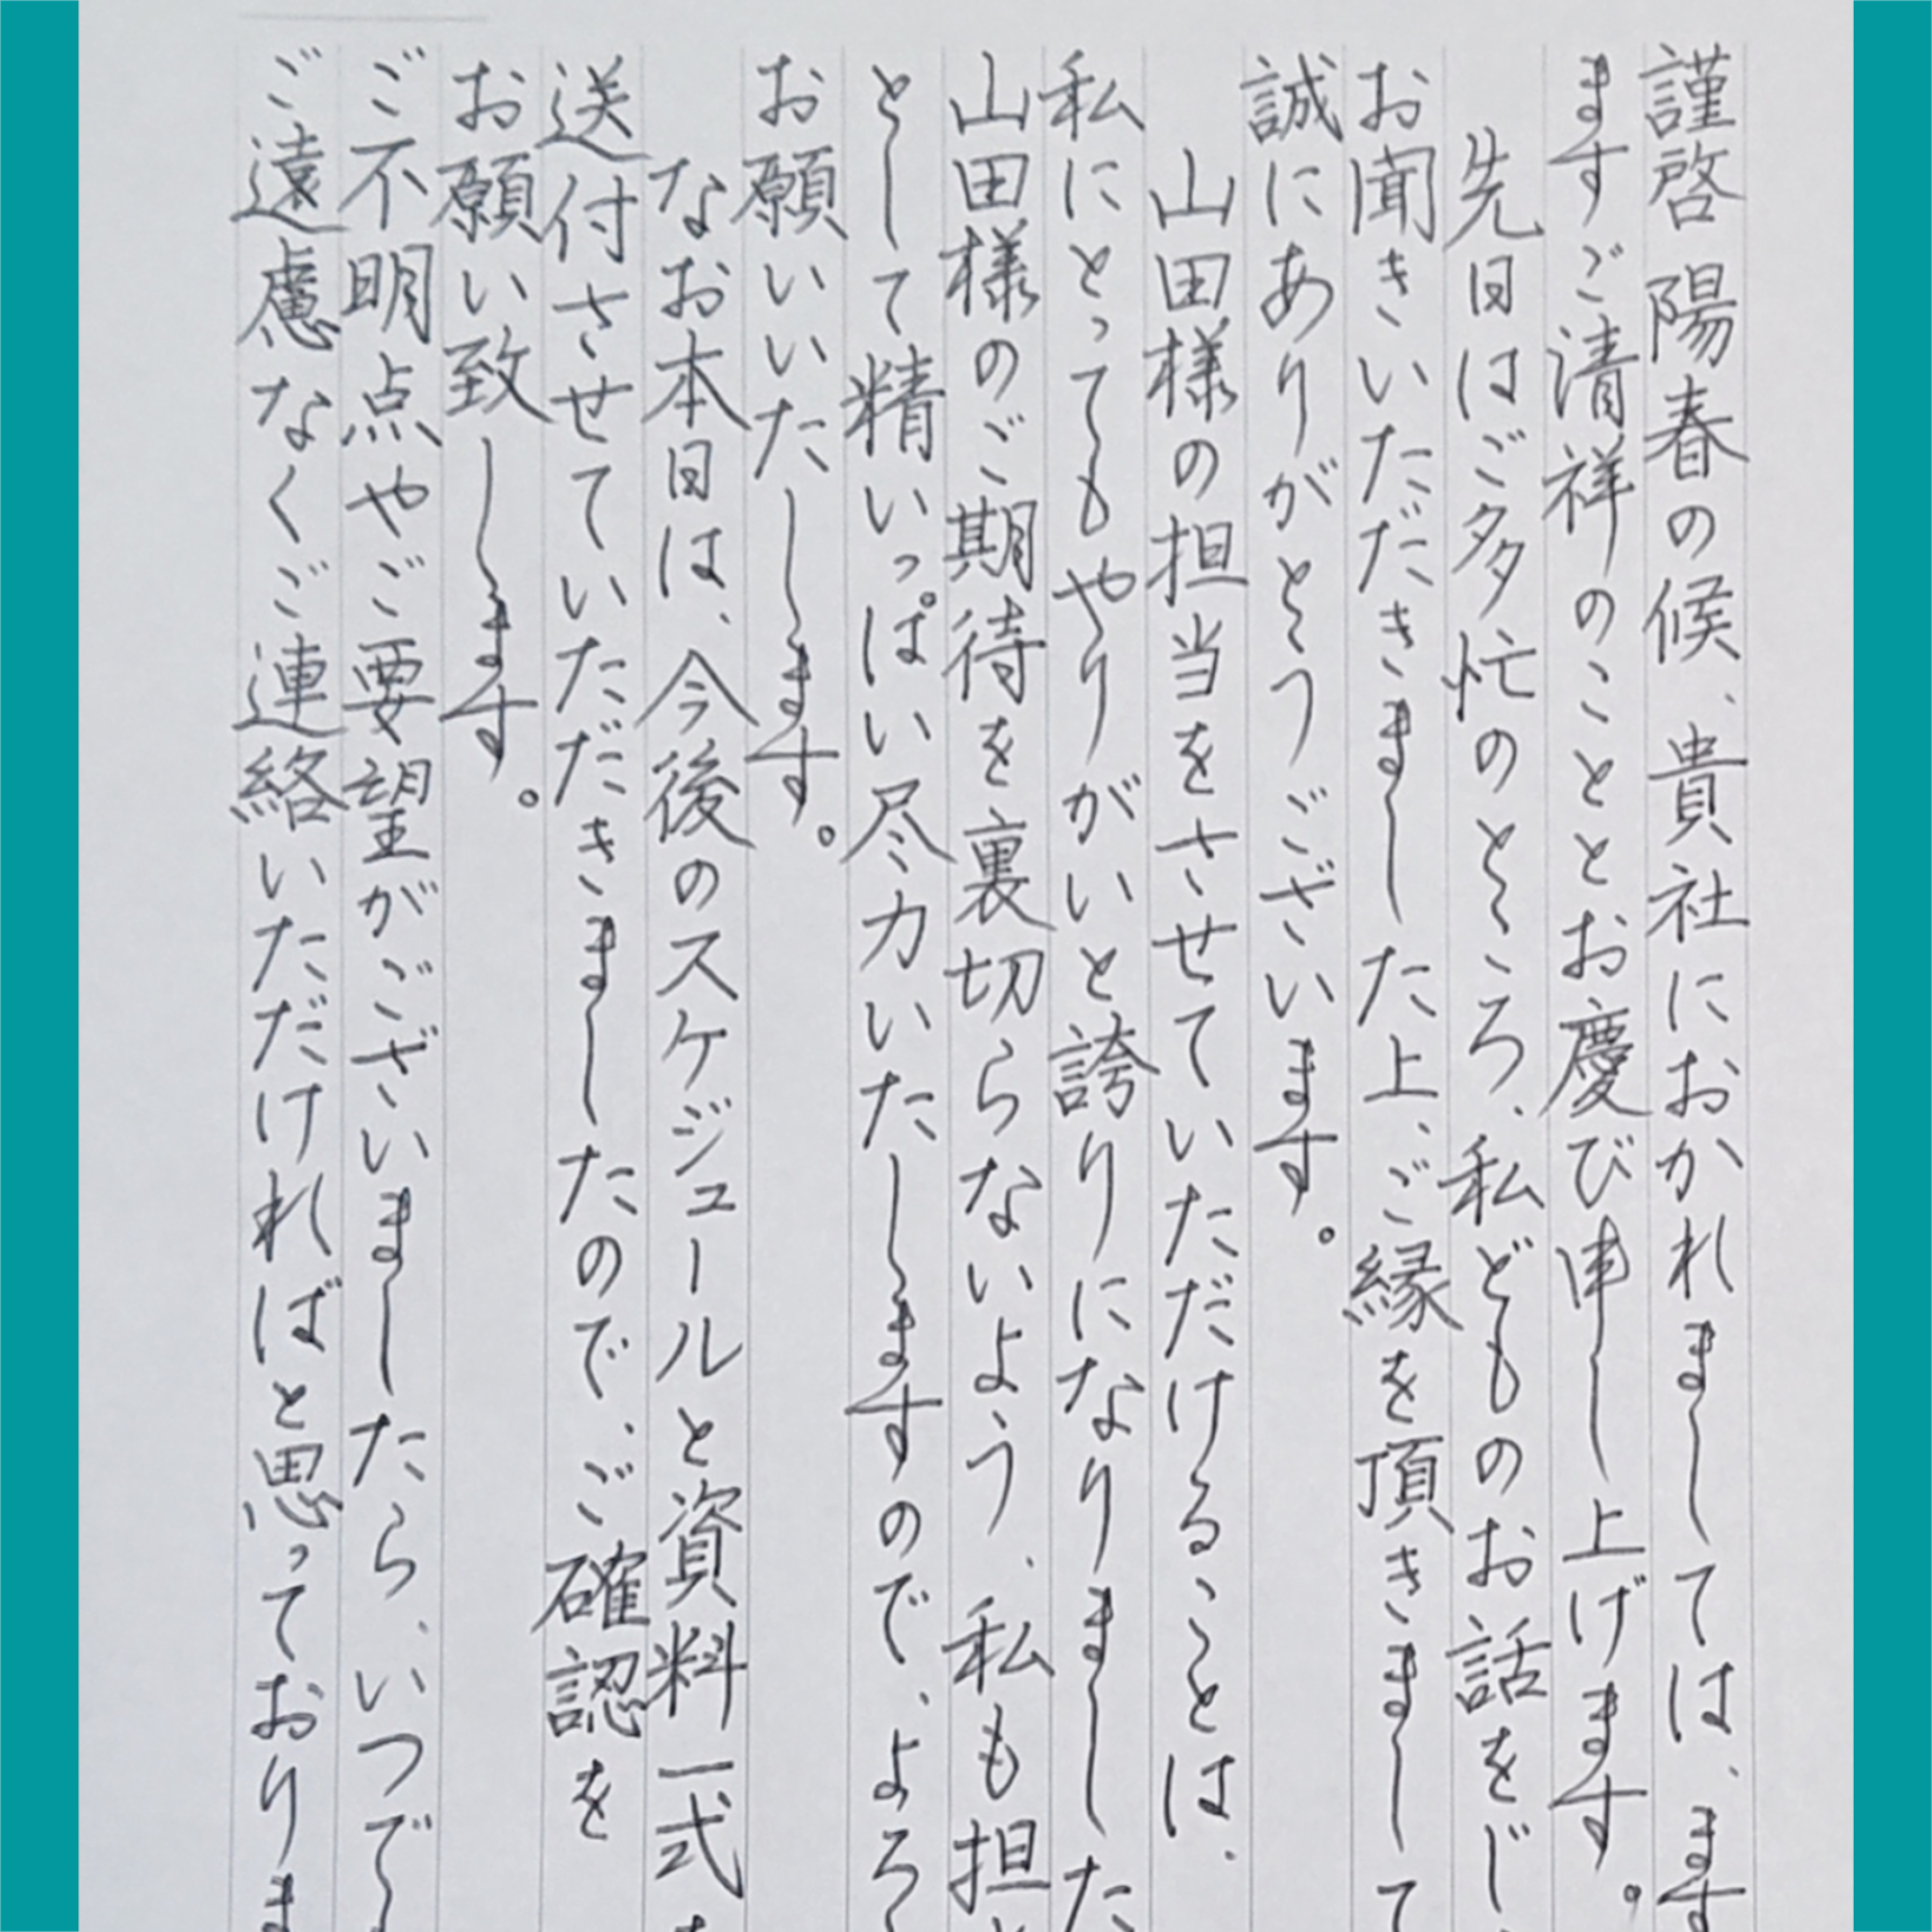 謹啓 陽春の候、貴社におかれましては、ます
ますご清祥のこととお慶び申し上げます。
先日はご多忙のところ、私どものお話をじ
お聞きいただきました上、ご縁を頂きまして
誠にありがとうございます。
山田様の担当をさせていただけることは、
私にとってもやりがいと誇りになりました
山田様のご期待を裏切らないよう、私も担
として精いっぱい尽力いたしますので、よろ
お願いいたします。
なお本日は、今後のスケジュールと資料一式
送付させていただきましたので、ご確認を
お願い致します。
ご不明点やご要望がございましたら、いつで
ご遠慮なくご連絡いただければと思っておりま